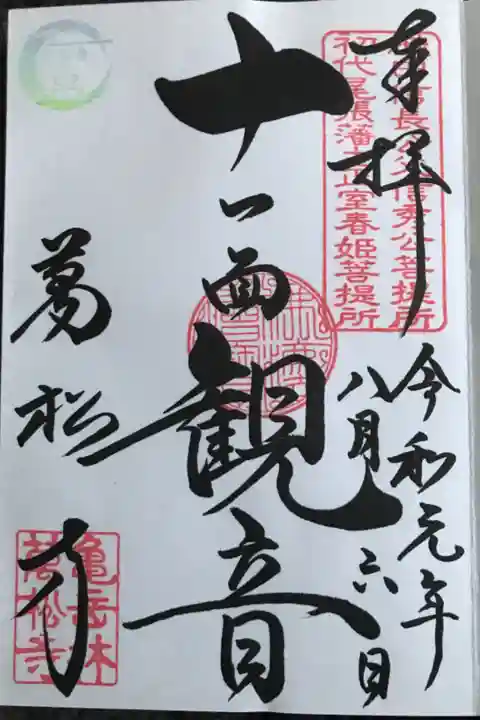 奉拝
織田信長公父信秀公菩提所
初代尾張藩主正室春姫菩提所
令和元年
八月六日
十一面観音
萬松寺
亀岳林
萬松寺